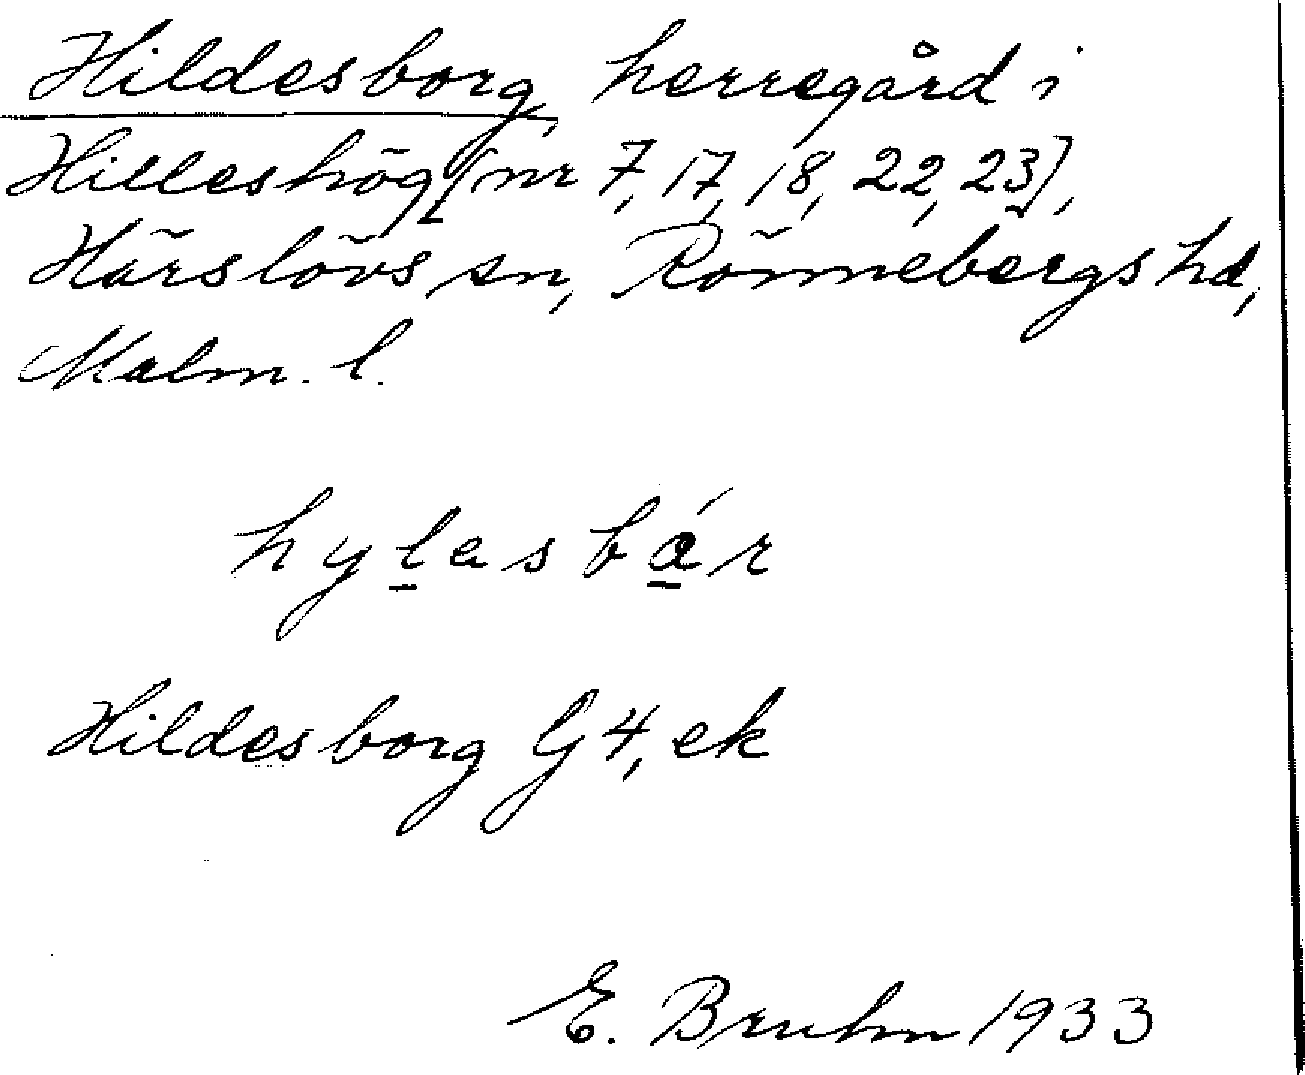 Hildesborg, herregård i
Hilleshög [nr 7, 17, 18, 22, 23],
Härslövs sn, Rönnebergs hd,
Malm. l.
hylasbár
Hildesborg G 4, ek
E. Bruhn 1933